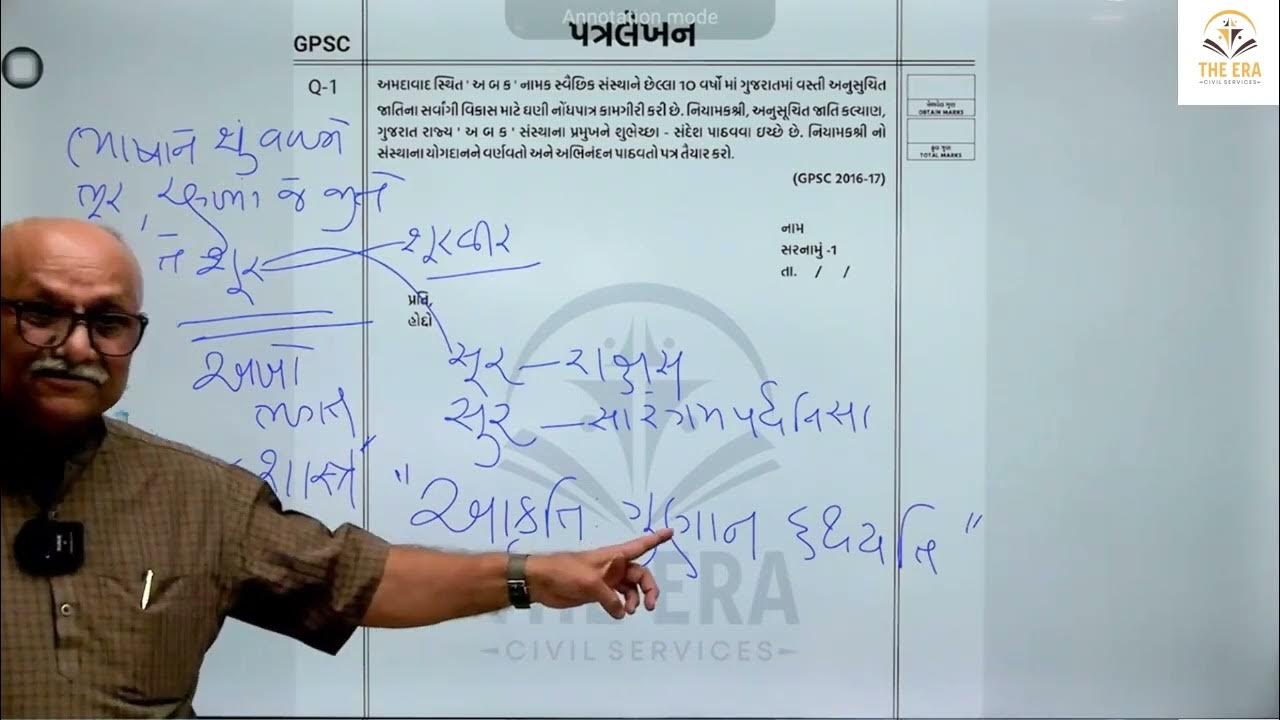 Annotation mode
પત્રલેખન
GPSC
THE ERA
CIVIL SERVICES
Q-1
અમદાવાદ સ્થિત ' અ બ ક ' નામક સ્વૈછિક સંસ્થાને છેલ્લા 10 વર્ષો માં ગુજરાતમાં વસ્તી અનુસુચિત
જાતિના સર્વાંગી વિકાસ માટે ઘણી નોંધપાત્ર કામગીરી કરી છે. નિયામકશ્રી, અનુસૂચિત જાતિ કલ્યાણ,
ગુજરાત રાજ્ય ' અ બ ક ' સંસ્થાના પ્રમુખને શુભેચ્છા - સંદેશ પાઠવવા ઇચ્છે છે. નિયામકશ્રી નો
સંસ્થાના યોગદાનને વર્ણવતો અને અભિનંદન પાઠવતો પત્ર તૈયાર કરો.
(GPSC 2016-17)
OBTAIN MARKS
કુલ ગુણ
TOTAL MARKS
ભાષાને શું વળગે
ભૂર, જે
તે શૂર
શૂરવીર
નામ
સરનામું -1
તા. / /
પ્રતિ,
હોદ્દો
અખો
ભગત
શાસ્ત્ર
સૂર –
સુર – સારેગમપધનિસા
"આકૃતિઃ ગુણાન કથયતિ"
THE ERA
CIVIL SERVICES